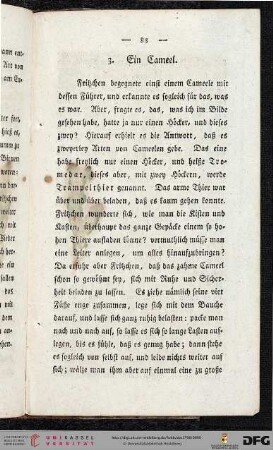 — 83 —
3. Ein Cameel.
Fritzchen begegnete einst einem Cameele mit
dessen Führer, und erkannte es sogleich für das, was
es war. Aber, fragte es, das, was ich im Bilde
gesehen habe, hatte ja nur einen Höcker, und dieses
zwey? Hierauf erhielt es die Antwort, daß es
zweyerley Arten von Cameelen gebe. Das eine
habe freylich nur einen Höcker, und heiße Dro-
medar, dieses aber, mit zwey Höckern, werde
Trampelthier genannt. Das arme Thier war
über und über beladen, daß es kaum gehen konnte.
Fritzchen wunderte sich, wie man die Kisten und
Kasten, überhaupt das ganze Gepäcke einem so ho-
hen Thiere aufladen könne? vermuthlich müsse man
eine Leiter anlegen, um alles hinaufzubringen?
Da erfuhr aber Fritzchen, daß das zahme Cameel
schon so gewöhnt sey, sich mit Ruhe und Sicher-
heit beladen zu lassen. Es ziehe nämlich seine vier
Füße enge zusammen, lege sich mit dem Bauche
darauf, und lasse sich ganz ruhig belasten: packe man
nach und nach auf, so lasse es sich so lange Lasten aufle-
gen, bis es fühle, daß es genug habe; dann stehe
es sogleich von selbst auf, und leide nichts weiter auf
sich; wälze man ihm aber auf einmal eine zu große
UNIKASSEL
VERSITÄT
DFG